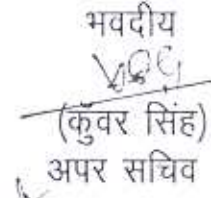 भवदीय
(कुँवर सिंह)
अपर सचिव